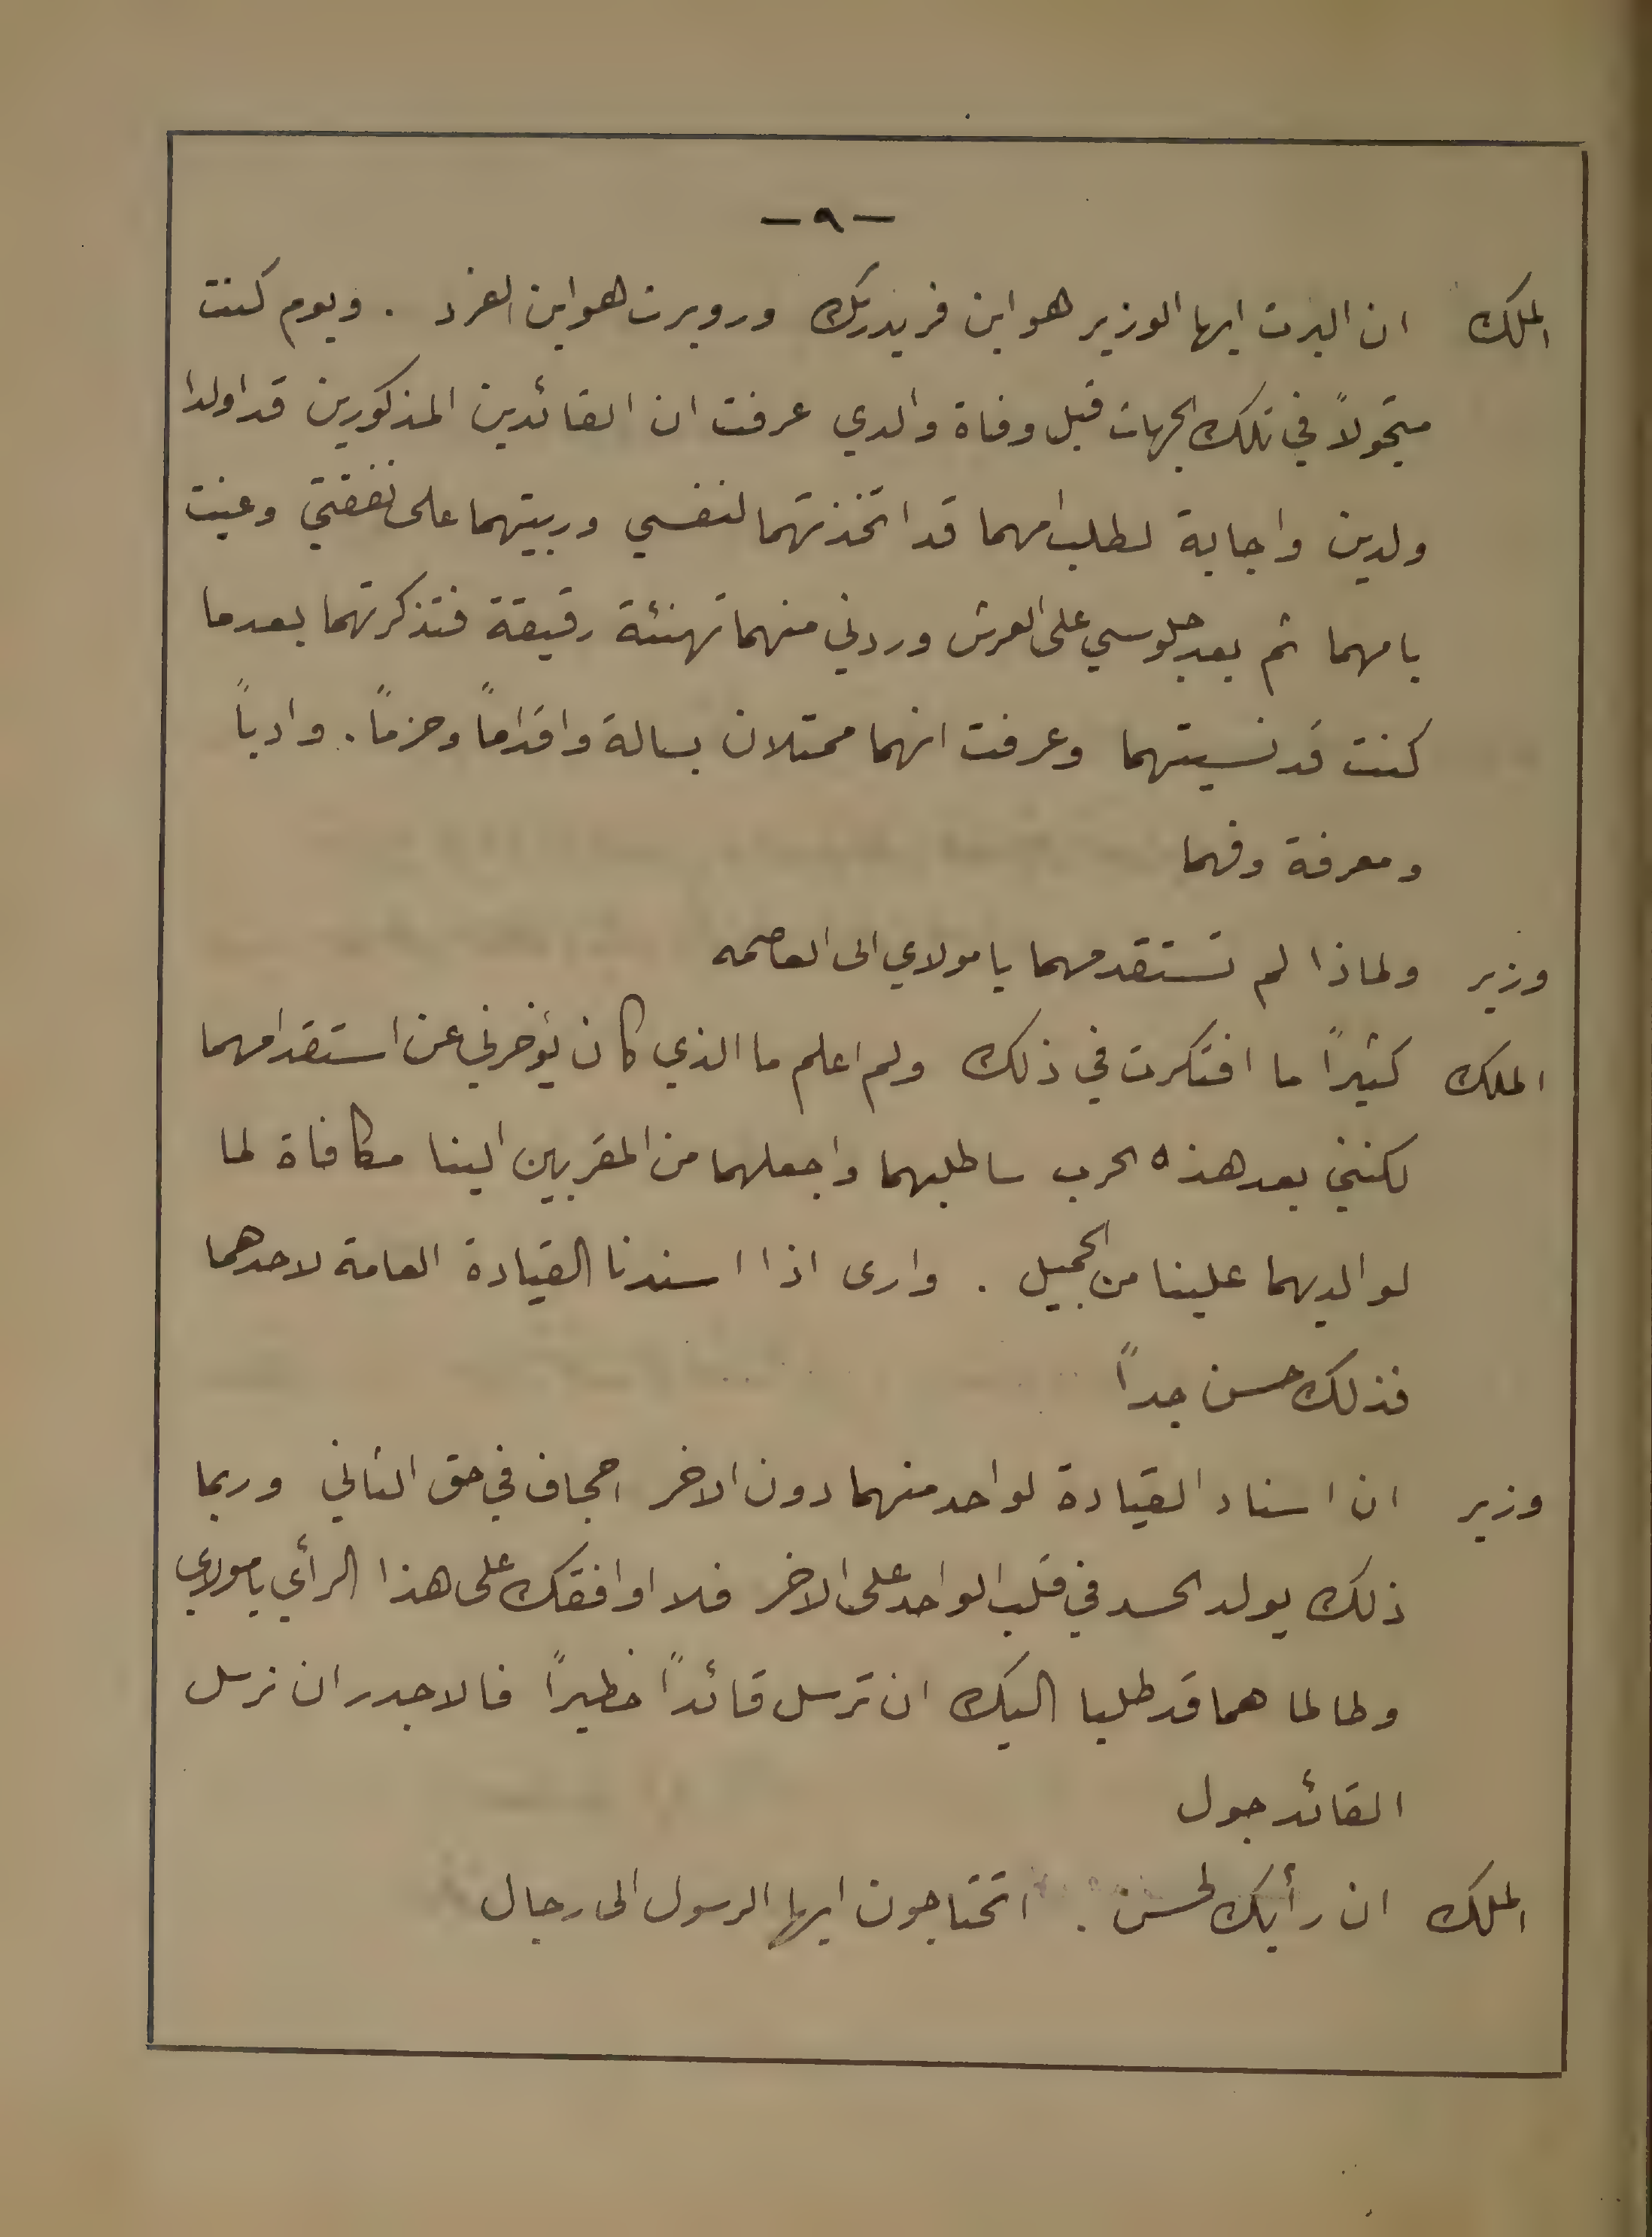 — ٩ —
الملك ان البرت ايها الوزير هو ابن فريدريك وروبرت هو ابن الفرد . ويوم كنت
متجولاً في تلك الجهات قبل وفاة والدي عرفت ان القائدين المذكورين قد اولدا
ولدين واجابة لطلب امهما قد اتخذتهما لنفسي وربيتهما على نفقتي وعنيت
بامهما ثم بعد جلوسي على العرش وردني منهما تهنئة رقيقة فتذكرتهما بعدما
كنت قد نسيتهما وعرفت انهما ممتلان بسالة واقداماً وحزماً . وادباً
ومعرفة وفهما
وزير ولماذا لم تستقدمهما يا مولاي الى العاصمه
الملك كثيراً ما افتكرت في ذلك ولم اعلم ما الذي كان يؤخرني عن استقدامهما
لكنني بعد هذه الحرب ساطلبهما واجعلهما من المقربين الينا مكافاة لما
لوالديهما علينا من الجميل . وارى اذا اسندنا القيادة العامة لاحدهما
فذلك حسن جداً
وزير ان اسناد القيادة لواحد منهما دون الاخر احجاف في حق الثاني وربما
ذلك يولد الحسد في قلب الواحد على الاخر فلا اوافقك على هذا الرأي يا مولاي
وطالما هما قد طلبا اليك ان ترسل قائداً خطيراً فالاجدر ان نرسل
القائد جول
الملك ان رأيك لحسن . اتحتاجون ايها الرسول الى رجال